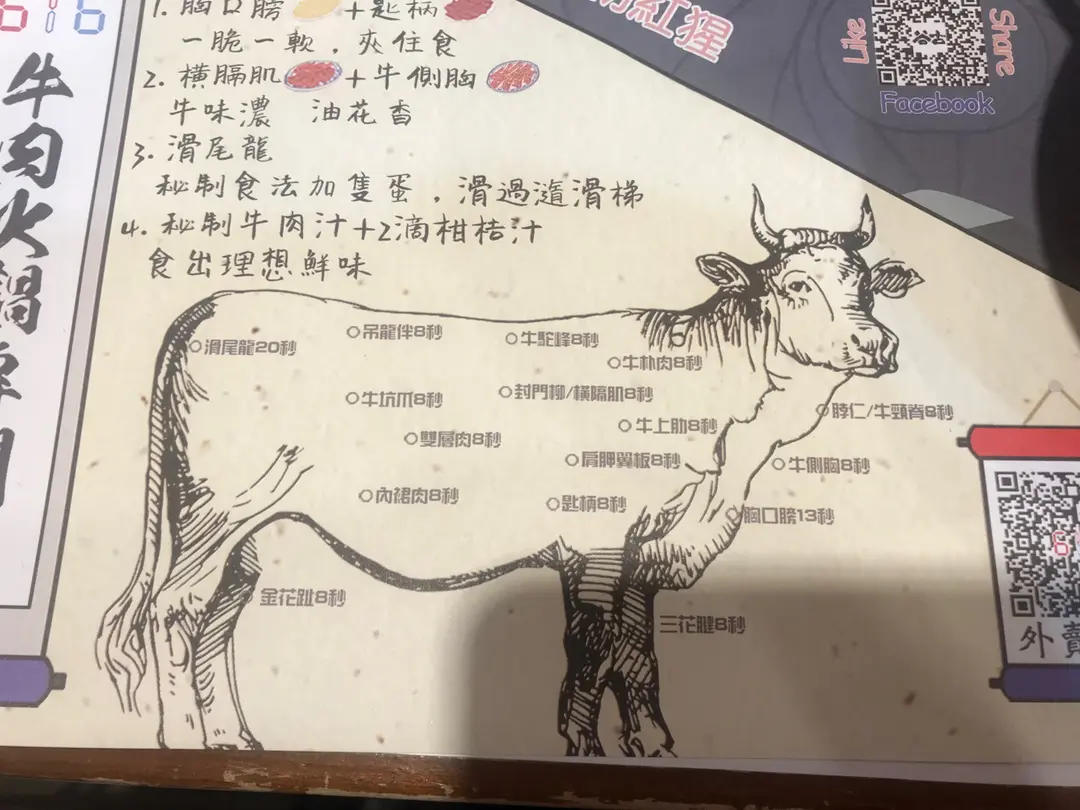 牛肉火鍋專門
1. 胸口膀 + 匙柄
一脆一軟，夾住食
2. 橫膈肌 + 牛側胸
牛味濃 油花香
3. 滑尾龍
秘制食法加隻蛋，滑過瀡滑梯
4. 秘制牛肉汁+2滴柑桔汁
食出理想鮮味
紅猩
Like
Share
Facebook
滑尾龍20秒
吊龍伴8秒
牛駝峰8秒
牛朴肉8秒
牛坑爪8秒
封門柳/橫隔肌8秒
脖仁/牛頸脊8秒
雙層肉8秒
牛上肋8秒
肩胛翼板8秒
牛側胸8秒
內裙肉8秒
匙柄8秒
胸口膀13秒
金花趾8秒
三花腱8秒
外賣